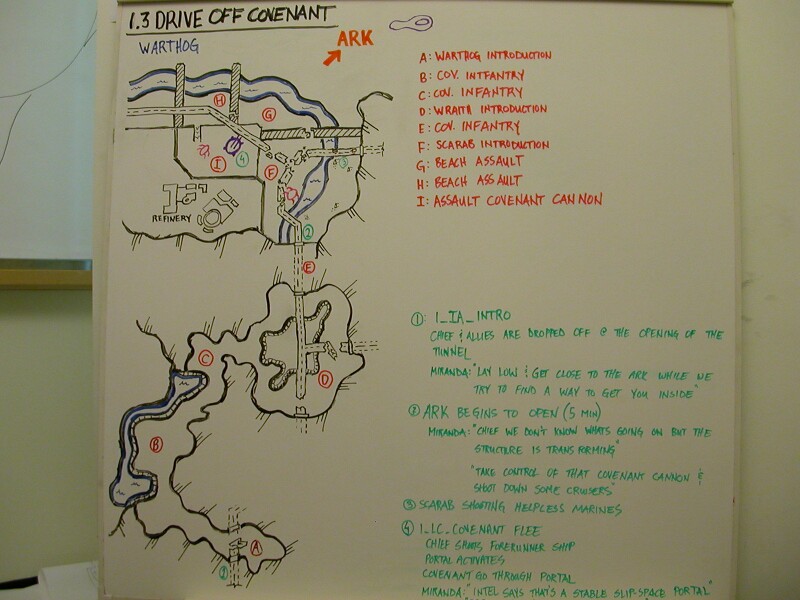 1.3 DRIVE OFF COVENANT
WARTHOG
ARK
A: WARTHOG INTRODUCTION
B: COV. INTFANTRY
C: COV. INFANTRY
D: WRAITH INTRODUCTION
E: COV. INFANTRY
F: SCARAB INTRODUCTION
G: BEACH ASSAULT
H: BEACH ASSAULT
I: ASSAULT COVENANT CANNON
H
G
I
4
F
3
REFINERY
2
E
C
D
B
A
1
1: 1_IA_INTRO
CHIEF & ALLIES ARE DROPPED OFF @ THE OPENING OF THE
TUNNEL
MIRANDA: "LAY LOW & GET CLOSE TO THE ARK WHILE WE
TRY TO FIND A WAY TO GET YOU INSIDE"
2 ARK BEGINS TO OPEN (5 MIN)
MIRANDA: "CHIEF WE DON'T KNOW WHATS GOING ON BUT THE
STRUCTURE IS TRANSFORMING"
"TAKE CONTROL OF THAT COVENANT CANNON &
SHOOT DOWN SOME CRUISERS"
3 SCARAB SHOOTING HELPLESS MARINES
4 1_1C_COVENANT FLEE
CHIEF SHOOTS FORERUNNER SHIP
PORTAL ACTIVATES
COVENANT GO THROUGH PORTAL
MIRANDA: "INTEL SAYS THAT'S A STABLE SLIP-SPACE PORTAL"